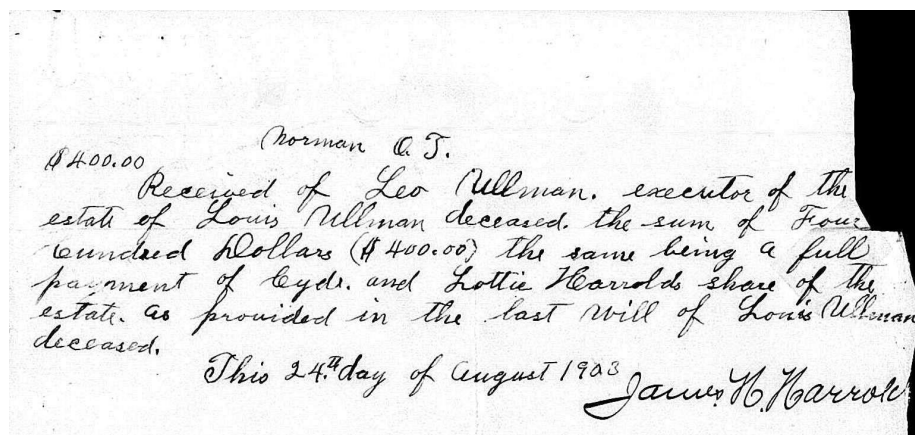 Norman O.T.
$400.00
Received of Leo Ullman. executor of the
estate of Louis Ullman deceased. the sum of Four
Hundred Dollars ($400.00) the same being a full
payment of Cyde. and Lottie Harrolds share of the
estate. as provided in the last will of Louis Ullman
deceased.
This 24.th day of August 1903
James H. Harrold